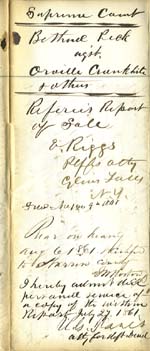 Supreme Court
Bethuel Peck
agst.
Orville Cronkhite
& others
Referee's Report
of Sale
E. Riggs
Plffs atty
Glens Falls
N.Y.
1861
Aug 6 1861
County
I hereby admit due
personal service of
a copy of the within
Report, July 27, 1861.
atty for deft